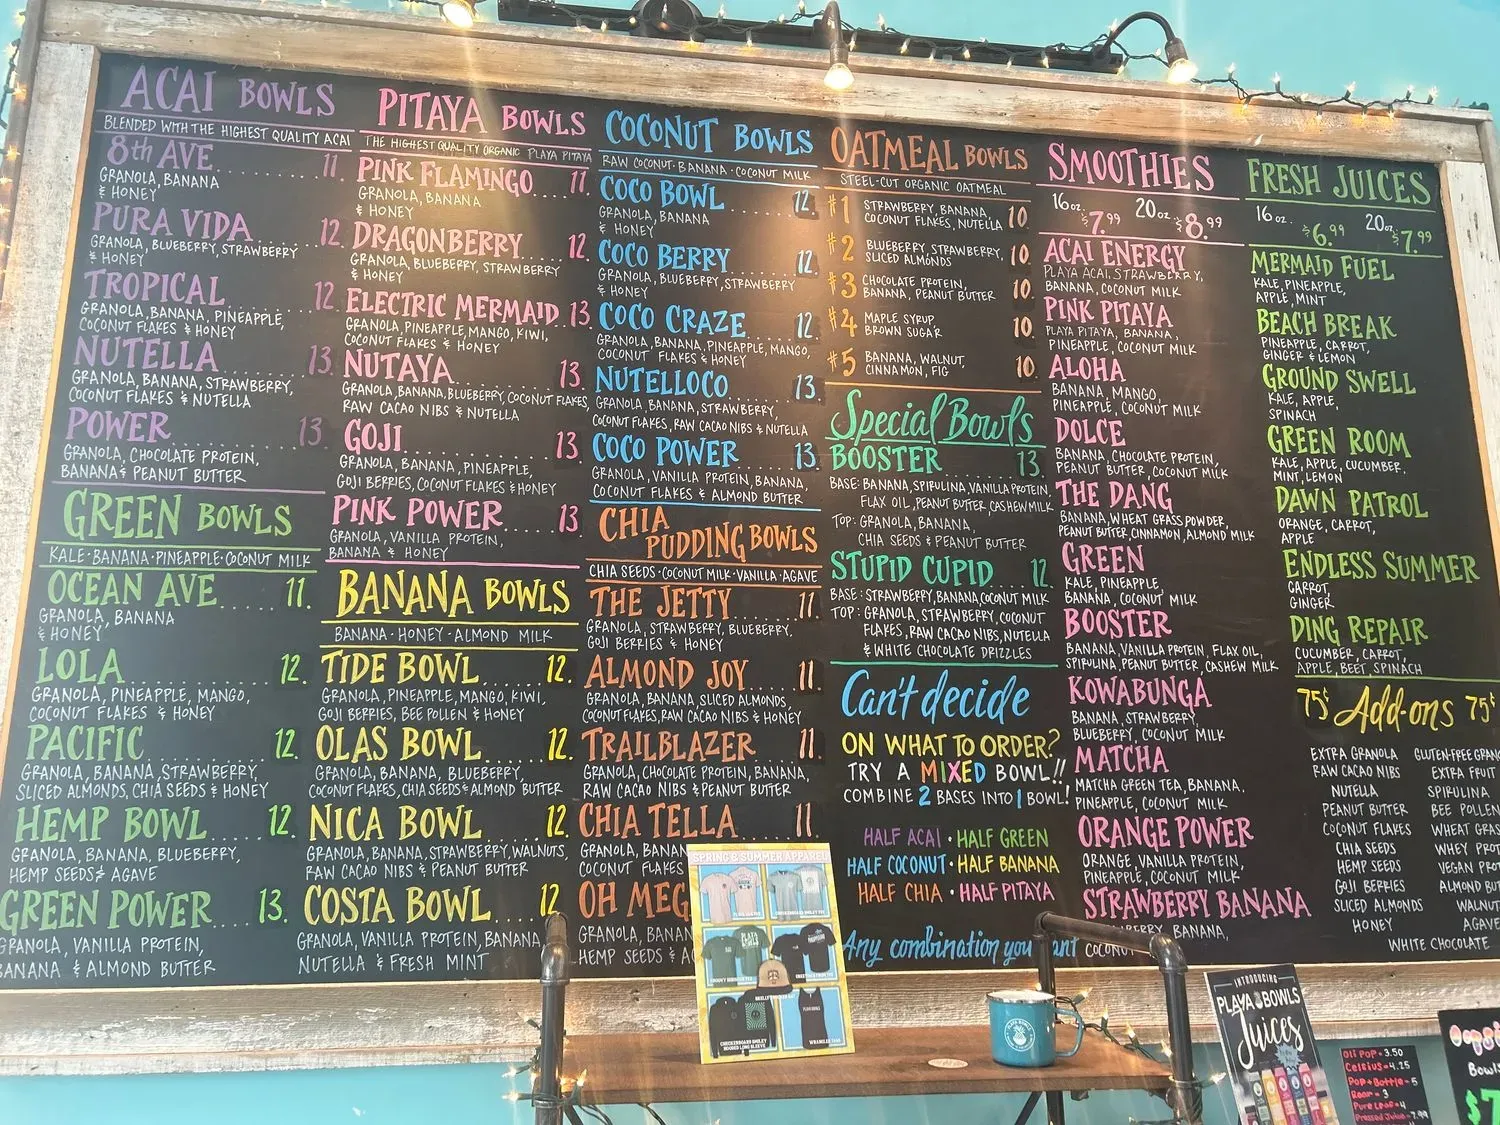 ACAI BOWLS
BLENDED WITH THE HIGHEST QUALITY ACAI
8th AVE 11.
GRANOLA, BANANA
& HONEY
PURA VIDA 12.
GRANOLA, BLUEBERRY, STRAWBERRY
& HONEY
TROPICAL 12.
GRANOLA, BANANA, PINEAPPLE,
COCONUT FLAKES & HONEY
NUTELLA 13.
GRANOLA, BANANA, STRAWBERRY,
COCONUT FLAKES & NUTELLA
POWER 13.
GRANOLA, CHOCOLATE PROTEIN,
BANANA & PEANUT BUTTER
GREEN BOWLS
KALE · BANANA · PINEAPPLE · COCONUT MILK
OCEAN AVE..... 11.
GRANOLA, BANANA
& HONEY
LOLA 12.
GRANOLA, PINEAPPLE, MANGO,
COCONUT FLAKES & HONEY
PACIFIC 12.
GRANOLA, BANANA, STRAWBERRY,
SLICED ALMONDS, CHIA SEEDS & HONEY
HEMP BOWL 12.
GRANOLA, BANANA, BLUEBERRY,
HEMP SEEDS & AGAVE
GREEN POWER 13.
GRANOLA, VANILLA PROTEIN,
BANANA & ALMOND BUTTER
PITAYA BOWLS
THE HIGHEST QUALITY ORGANIC PLAYA PITAYA
PINK FLAMINGO... 11.
GRANOLA, BANANA
& HONEY
DRAGONBERRY 12.
GRANOLA, BLUEBERRY, STRAWBERRY
& HONEY
ELECTRIC MERMAID 13.
GRANOLA, PINEAPPLE, MANGO, KIWI,
COCONUT FLAKES & HONEY
NUTAYA 13.
GRANOLA, BANANA, BLUEBERRY, COCONUT FLAKES,
RAW CACAO NIBS & NUTELLA
GOJI 13.
GRANOLA, BANANA, PINEAPPLE,
GOJI BERRIES, COCONUT FLAKES & HONEY
PINK POWER.... 13
GRANOLA, VANILLA PROTEIN,
BANANA & HONEY
BANANA BOWLS
BANANA · HONEY · ALMOND MILK
TIDE BOWL 12.
GRANOLA, PINEAPPLE, MANGO, KIWI,
GOJI BERRIES, BEE POLLEN & HONEY
OLAS BOWL 12.
GRANOLA, BANANA, BLUEBERRY,
COCONUT FLAKES, CHIA SEEDS & ALMOND BUTTER
NICA BOWL 12.
GRANOLA, BANANA, STRAWBERRY, WALNUTS,
RAW CACAO NIBS & PEANUT BUTTER
COSTA BOWL.... 12
GRANOLA, VANILLA PROTEIN, BANANA,
NUTELLA & FRESH MINT
COCONUT BOWLS
RAW COCONUT · BANANA · COCONUT MILK
COCO BOWL 12.
GRANOLA, BANANA
& HONEY
COCO BERRY 12.
GRANOLA, BLUEBERRY, STRAWBERRY
& HONEY
COCO CRAZE 12
GRANOLA, BANANA, PINEAPPLE, MANGO,
COCONUT FLAKES & HONEY
NUTELLOCO 13.
GRANOLA, BANANA, STRAWBERRY,
COCONUT FLAKES, RAW CACAO NIBS & NUTELLA
COCO POWER 13.
GRANOLA, VANILLA PROTEIN, BANANA,
COCONUT FLAKES & ALMOND BUTTER
CHIA
PUDDING BOWLS
CHIA SEEDS · COCONUT MILK · VANILLA · AGAVE
THE JETTY 11
GRANOLA, STRAWBERRY, BLUEBERRY,
GOJI BERRIES & HONEY
ALMOND JOY 11.
GRANOLA, BANANA, SLICED ALMONDS,
COCONUT FLAKES, RAW CACAO NIBS & HONEY
TRAILBLAZER 11.
GRANOLA, CHOCOLATE PROTEIN, BANANA,
RAW CACAO NIBS & PEANUT BUTTER
CHIA TELLA 11.
GRANOLA, BANAN
COCONUT FLAKES
OH MEG
GRANOLA, BANAN
HEMP SEEDS & A
OATMEAL BOWLS
STEEL-CUT ORGANIC OATMEAL
#1 STRAWBERRY, BANANA,
COCONUT FLAKES, NUTELLA 10
#2 BLUEBERRY, STRAWBERRY,
SLICED ALMONDS 10.
#3 CHOCOLATE PROTEIN,
BANANA, PEANUT BUTTER 10.
#4 MAPLE SYRUP
BROWN SUGAR 10.
#5 BANANA, WALNUT,
CINNAMON, FIG 10.
Special Bowls
BOOSTER 13.
BASE: BANANA, SPIRULINA, VANILLA PROTEIN,
FLAX OIL, PEANUT BUTTER, CASHEW MILK
TOP: GRANOLA, BANANA,
CHIA SEEDS & PEANUT BUTTER
STUPID CUPID 12.
BASE: STRAWBERRY, BANANA, COCONUT MILK
TOP: GRANOLA, STRAWBERRY, COCONUT
FLAKES, RAW CACAO NIBS, NUTELLA
& WHITE CHOCOLATE DRIZZLES
Can't decide
ON WHAT TO ORDER?
TRY A MIXED BOWL!!
COMBINE 2 BASES INTO 1 BOWL!
HALF ACAI · HALF GREEN
HALF COCONUT · HALF BANANA
HALF CHIA · HALF PITAYA
Any combination you want
SMOOTHIES
16oz. $7.99 20oz. $8.99
ACAI ENERGY
PLAYA ACAI, STRAWBERRY,
BANANA, COCONUT MILK
PINK PITAYA
PLAYA PITAYA, BANANA,
PINEAPPLE, COCONUT MILK
ALOHA
BANANA, MANGO,
PINEAPPLE, COCONUT MILK
DOLCE
BANANA, CHOCOLATE PROTEIN,
PEANUT BUTTER, COCONUT MILK
THE DANG
BANANA, WHEAT GRASS POWDER,
PEANUT BUTTER, CINNAMON, ALMOND MILK
GREEN
KALE, PINEAPPLE,
BANANA, COCONUT MILK
BOOSTER
BANANA, VANILLA PROTEIN, FLAX OIL,
SPIRULINA, PEANUT BUTTER, CASHEW MILK
KOWABUNGA
BANANA, STRAWBERRY,
BLUEBERRY, COCONUT MILK
MATCHA
MATCHA GREEN TEA, BANANA,
PINEAPPLE, COCONUT MILK
ORANGE POWER
ORANGE, VANILLA PROTEIN,
PINEAPPLE, COCONUT MILK
STRAWBERRY BANANA
BERRY, BANANA,
COCONUT
FRESH JUICES
16oz. $6.99 20oz. $7.99
MERMAID FUEL
KALE, PINEAPPLE,
APPLE, MINT
BEACH BREAK
PINEAPPLE, CARROT,
GINGER & LEMON
GROUND SWELL
KALE, APPLE,
SPINACH
GREEN ROOM
KALE, APPLE, CUCUMBER,
MINT, LEMON
DAWN PATROL
ORANGE, CARROT,
APPLE
ENDLESS SUMMER
CARROT,
GINGER
DING REPAIR
CUCUMBER, CARROT,
APPLE, BEET, SPINACH
75¢ Add-ons 75¢
EXTRA GRANOLA
RAW CACAO NIBS
NUTELLA
PEANUT BUTTER
COCONUT FLAKES
CHIA SEEDS
HEMP SEEDS
GOJI BERRIES
SLICED ALMONDS
HONEY
GLUTEN-FREE GRANO
EXTRA FRUIT
SPIRULINA
BEE POLLEN
WHEAT GRAS
WHEY PROT
VEGAN PRO
ALMOND BUT
WALNUT
AGAVE
WHITE CHOCOLATE
SPRING & SUMMER APPAREL
WRANGLER TANK
INTRODUCING
PLAYA BOWLS
Juices
Oli POP - 3.50
Celsius - 4.25
Pop + Bottle - 5
Roar - 3
Pure Leaf - 4
Pressed Juice - 7.99
Bowls
$7